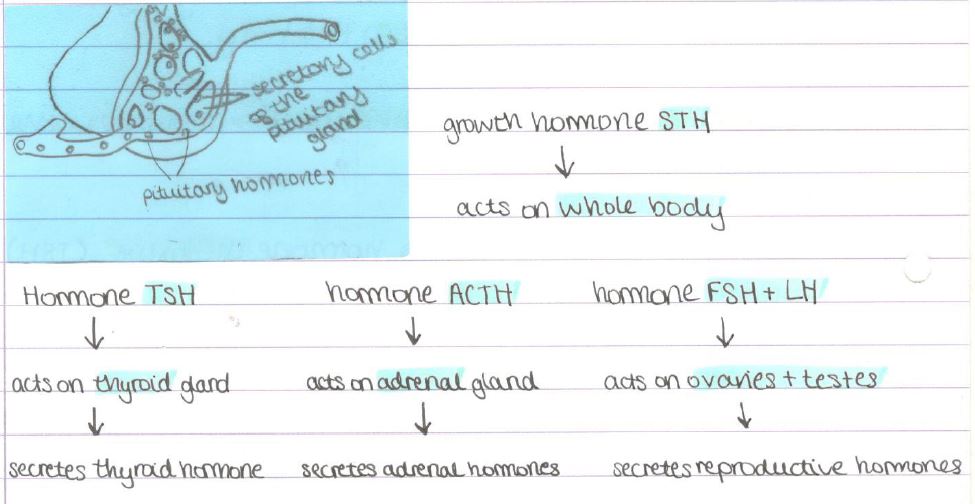 secretory cells
of the
pituitary
gland
pituitary hormones
growth hormone STH
acts on whole body
Hormone TSH
hormone ACTH
hormone FSH + LH
acts on thyroid gland
acts on adrenal gland
acts on ovaries + testes
secretes thyroid hormone
secretes adrenal hormones
secretes reproductive hormones